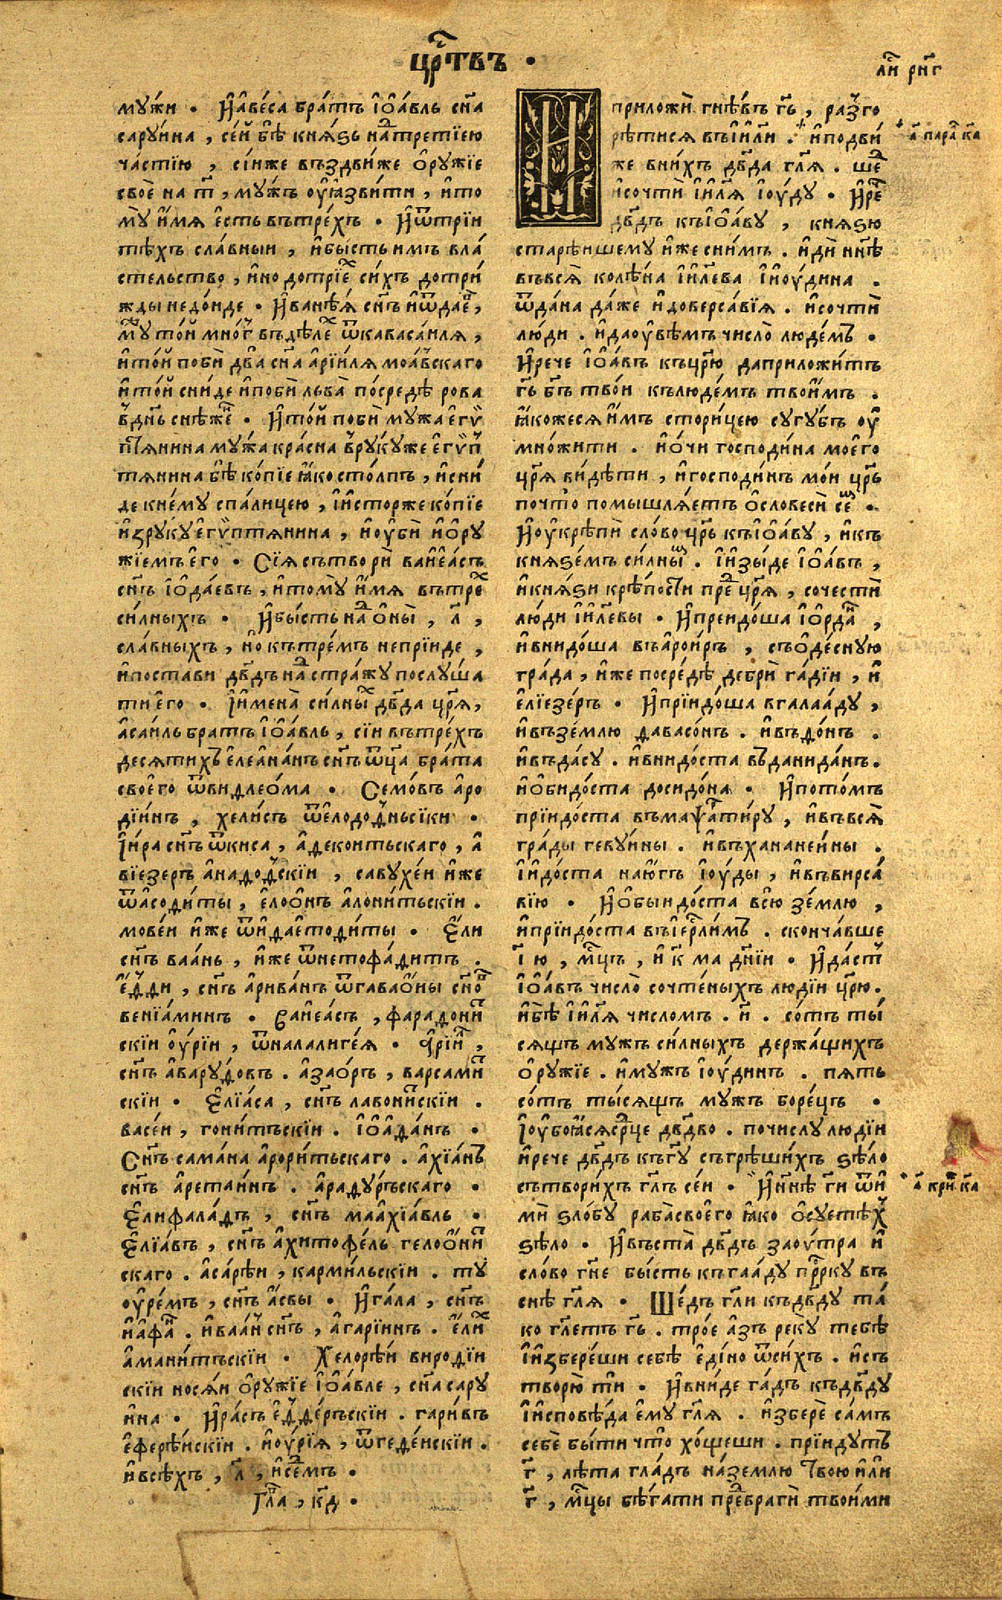 цр҃твъ ·
ли҃ ри҃г
мꙋжи · И҆авеса братъ і҆ѻ҆авль сн҃а
сарꙋина , сей бѣ кнѧѕь на третїею
частїю , сїиже въздвиже ѻ҆рꙋжїе
свое на т҃ , мꙋжъ ꙋ҆ꙗзвити , и҆то
мꙋ и҆мѧ є҆сть въ трехъ · И҆ѿтрїи
тѣхъ славныи , и҆бысть имъ вла
стельство , и҆но до трїе сихъ до три
жды недоиде · И҆ванеѧ сн҃ъ и҆ѡ҆дае ,
мꙋ той мног въ дѣле ѿ кавасаилѧ ,
и҆той поби два сн҃а а҆рїилѧ моавскаго
и҆той сниде и҆поби льва посредѣ рова
в дн҃ь снѣже · И҆той поби мꙋжа є҆гѵ
птѧнина мꙋжа красна в рꙋкꙋже є҆гѵп
тѧнина бѣ копїе ꙗко столпъ , и҆сни
де к немꙋ с палицею , і҆и҆сторже копїе
и҆зрꙋкꙋ є҆гѵптѧнина , и҆ꙋби и҆ ѻ҆рꙋ
жїемъ є҆го · Сїѧ сътвори ванеасъ
сн҃ъ і҆ѻ҆даевъ , и҆томꙋ и҆мѧ въ тре
силныхъ · И҆бысть на ѻ҆ны , л҃ ,
славныхъ , но къ тремъ неприиде ,
и҆постави дв҃дъ на стражꙋ послꙋша
ти є҆го · І҆имена силны дв҃да цр҃ѧ ,
а҆саиль братъ і҆ѻ҆авль , сїи въ трехъ
десѧтихъ є҆леананъ сн҃ъ ѿца брата
своего ѿ видлеома · Семовъ а҆ро
дїинъ , хелисъ ѿ є҆лододньсїки ·
І҆ира сн҃ъ ѿ киса , а҆деконтьскаго , а҆
вїезеръ а҆наѳодскїи , савꙋхеи и҆же
ѿ а҆содиты , є҆лоѻнъ а҆лонитьскїи .
мовеи и҆же ѿ и҆даетодиты · Є҆ли
сн҃ъ ваань , и҆же ѿ нетофадитъ .
є҆ѳди , сн҃ъ а҆риванъ ѿ гаваѻны сн҃о
венїаминъ · ванеасъ , фарадони
скїи ѻ҆ꙋрїи , ѿ налалигеѧ ·
сн҃ъ а҆варꙋдовъ . а҆заоръ , варсами
скїи · Є҆лїаса , сн҃ъ лавонискїи .
васеи , гонитьскїи . І҆ѻ҆аданъ ·
Сн҃ъ самана а҆роритьскаго . а҆хїанъ
сн҃ъ а҆ретаинъ . а҆радꙋръскаго ·
Є҆лифаладъ , сн҃ъ маахїавль ·
Є҆лїавъ , сн҃ъ а҆хитофель гелоѻни
скаго . а҆сарѣи , кармильскїи . тꙋ
ѻ҆ꙋремъ , сн҃ъ а҆свы · И҆гала , сн҃ъ
наѳа . и҆ваан сн҃ъ , а҆гарїинъ . є҆ли
а҆манитьскїи · Хелорѣи виродїи
скїи носѧи ѻ҆рꙋжїе і҆ѻ҆авле , сн҃а сарꙋ
ина · И҆расъ є҆ѳѳерьскїи . гаривъ
є҆ферѣискїи . и҆ ꙋрїѧ , ѿ геденскїи .
и҆всѣхъ , л҃ , и҆семъ .
Гла҃ , кд҃ ·
И҆приложи гнѣвъ гь҃ , разго
рѣтисѧ въ і҆и҃ли . и҆подви
же в нихъ дв҃да гл҃ѧ . ше
и҆сочти і҆и҃лѧ і҆ꙋдꙋ · И҆ре
дв҃дъ къ і҆ѻ҆авꙋ , кнѧѕю
старѣишемꙋ и҆же с нимъ . и҆ди нн҃ѣ
въ всѧ колѣна і҆и҃лева і҆ и҆ꙋдина .
ѿ дана даже и҆ до версавїѧ . и҆сочти
люди . и҆да ꙋвѣмъ число людемъ ·
И҆рече і҆ѻ҆авъ къ цр҃ю да приложитъ
гь҃ бг҃ъ твои къ людемъ твоимъ .
ꙗкожесѧ и҆мъ сторицею сꙋгꙋбъ ꙋ
множити . и҆ ѻчи господина моего
цр҃ѧ видѣти , и҆господинъ мои цр҃ь
почто помышлѧетъ ѻ҆ словеси се ·
И҆ꙋкрѣпи слово цр҃ь къ і҆ѻ҆авꙋ , и҆къ
кнѧѕемъ силны . І҆и҆зыде і҆ѻ҆авъ ,
и҆кнѧѕи крѣпости пре цр҃ѧ , сочести
люди і҆и҃левы · И҆преидоша і҆ѻрда ,
и҆внидоша въ а҆роиръ , съ ѻ҆деснꙋю
града , и҆же посредѣ дебри гадїи , и҆
є҆лїезеръ · И҆прїидоша в галаадꙋ ,
и҆въ землю давасонъ . и҆въ донъ .
и҆въ дасꙋ . и҆внидоста въ даниданъ .
и҆ ѻбидоста до сидона · И҆потомъ
прїидоста въ мапсатирꙋ , и҆въ всѧ
грады гевꙋины . и҆въ хананеины .
І҆и҆доста на югъ і҆ꙋды , и҆въ вирса
вїю · И҆ ѻбыидоста всю землю ,
и҆прїидоста въ і҆ер҃лимъ . скончавше
ѳ҃ ю , мц҃ъ , и҆ к҃ ма дн҃їи · И҆даст
і҆ѻ҆авъ число сочтеныхъ людїи цр҃ю .
и҆бѣ і҆и҃лѧ числомъ . и҃ . сотъ ты
сѧщъ мꙋжъ силныхъ держащихъ
ѻ҆рꙋжїе . и҆мꙋжъ і҆ꙋдинъ . пѧть
сотъ тысѧщъ мꙋжъ борець ·
І҆ꙋбоꙗсѧ ср҃це дв҃дво . по числꙋ людїи
и҆рече дв҃дъ къ гꙋ҃ съгрѣшихъ ѕѣло
сътворихъ гл҃ъ сеи · И҆нн҃ѣ ги҃ ѿи
ми ѕлобꙋ раба своего ꙗко ѻ҆сꙋетѣх
ѕѣло · И҆въста дв҃дъ заꙋтра и҆
слово гн҃е бысть къ гаадꙋ прр҃кꙋ въ
снѣ гл҃ѧ · Шедъ гл҃и къ дв҃дꙋ та
ко гл҃етъ гь҃ . трое а҆зъ рекꙋ тебѣ
І҆и҆збереши себѣ є҆дино ѿ сихъ . и҆съ
творю ти · И҆вниде гадъ къ дв҃дꙋ
І҆и҆сповѣда є҆мꙋ гл҃ѧ . и҆збери самъ
себе быти что хощеши . прїидꙋтъ
г҃ , лѣта гладъ на землю твою и҆ли
г҃ , мц҃ы бѣгати пре враги твоими
а҃ пара ка
а҃ кри ка